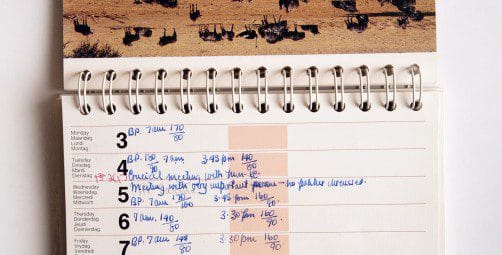 Monday
Maandag
Lundi
Montag
3
B.P. 7am 170/80
Tuesday
Dinsdag
Mardi
Dienstag
4
B.P. 7am 3.45pm 140/80
Crucial meeting with him
Wednesday
Woensdag
Mercredi
Mittwoch
5
Meeting with very important person – no politics discussed.
B.P. 7am 170/100 3.45 pm 160/90
Thursday
Donderdag
Jeudi
Donnerstag
6
7am. 140/80 3.30 pm 160/90.
Friday
Vrydag
Vendredi
Freitag
7
B.P. 7am 3.30 pm 160/90.